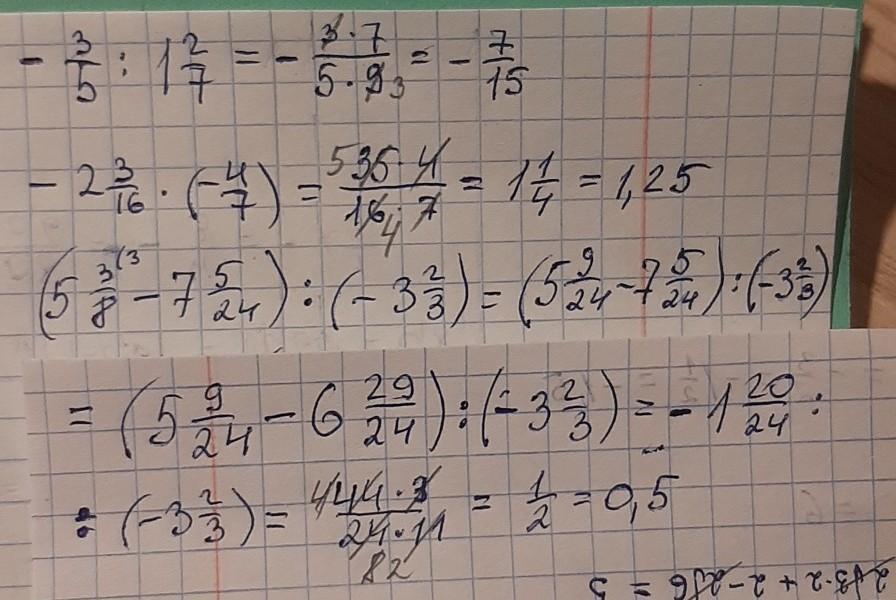 - 3/5 : 1 2/7 = - (3·7)/(5·9) 3 = - 7/15
- 2 3/16 · (- 4/7) = 5 (35·4)/(16·7) 4 = 1 1/4 = 1,25
(5 3/8 (3 - 7 5/24) : (- 3 2/3) = (5 9/24 - 7 5/24) : (-3 2/3)
= (5 9/24 - 6 29/24) : (- 3 2/3) = - 1 20/24 :
: (-3 2/3) = 4 (44·3)/(24·11) 8 2 = 1/2 = 0,5